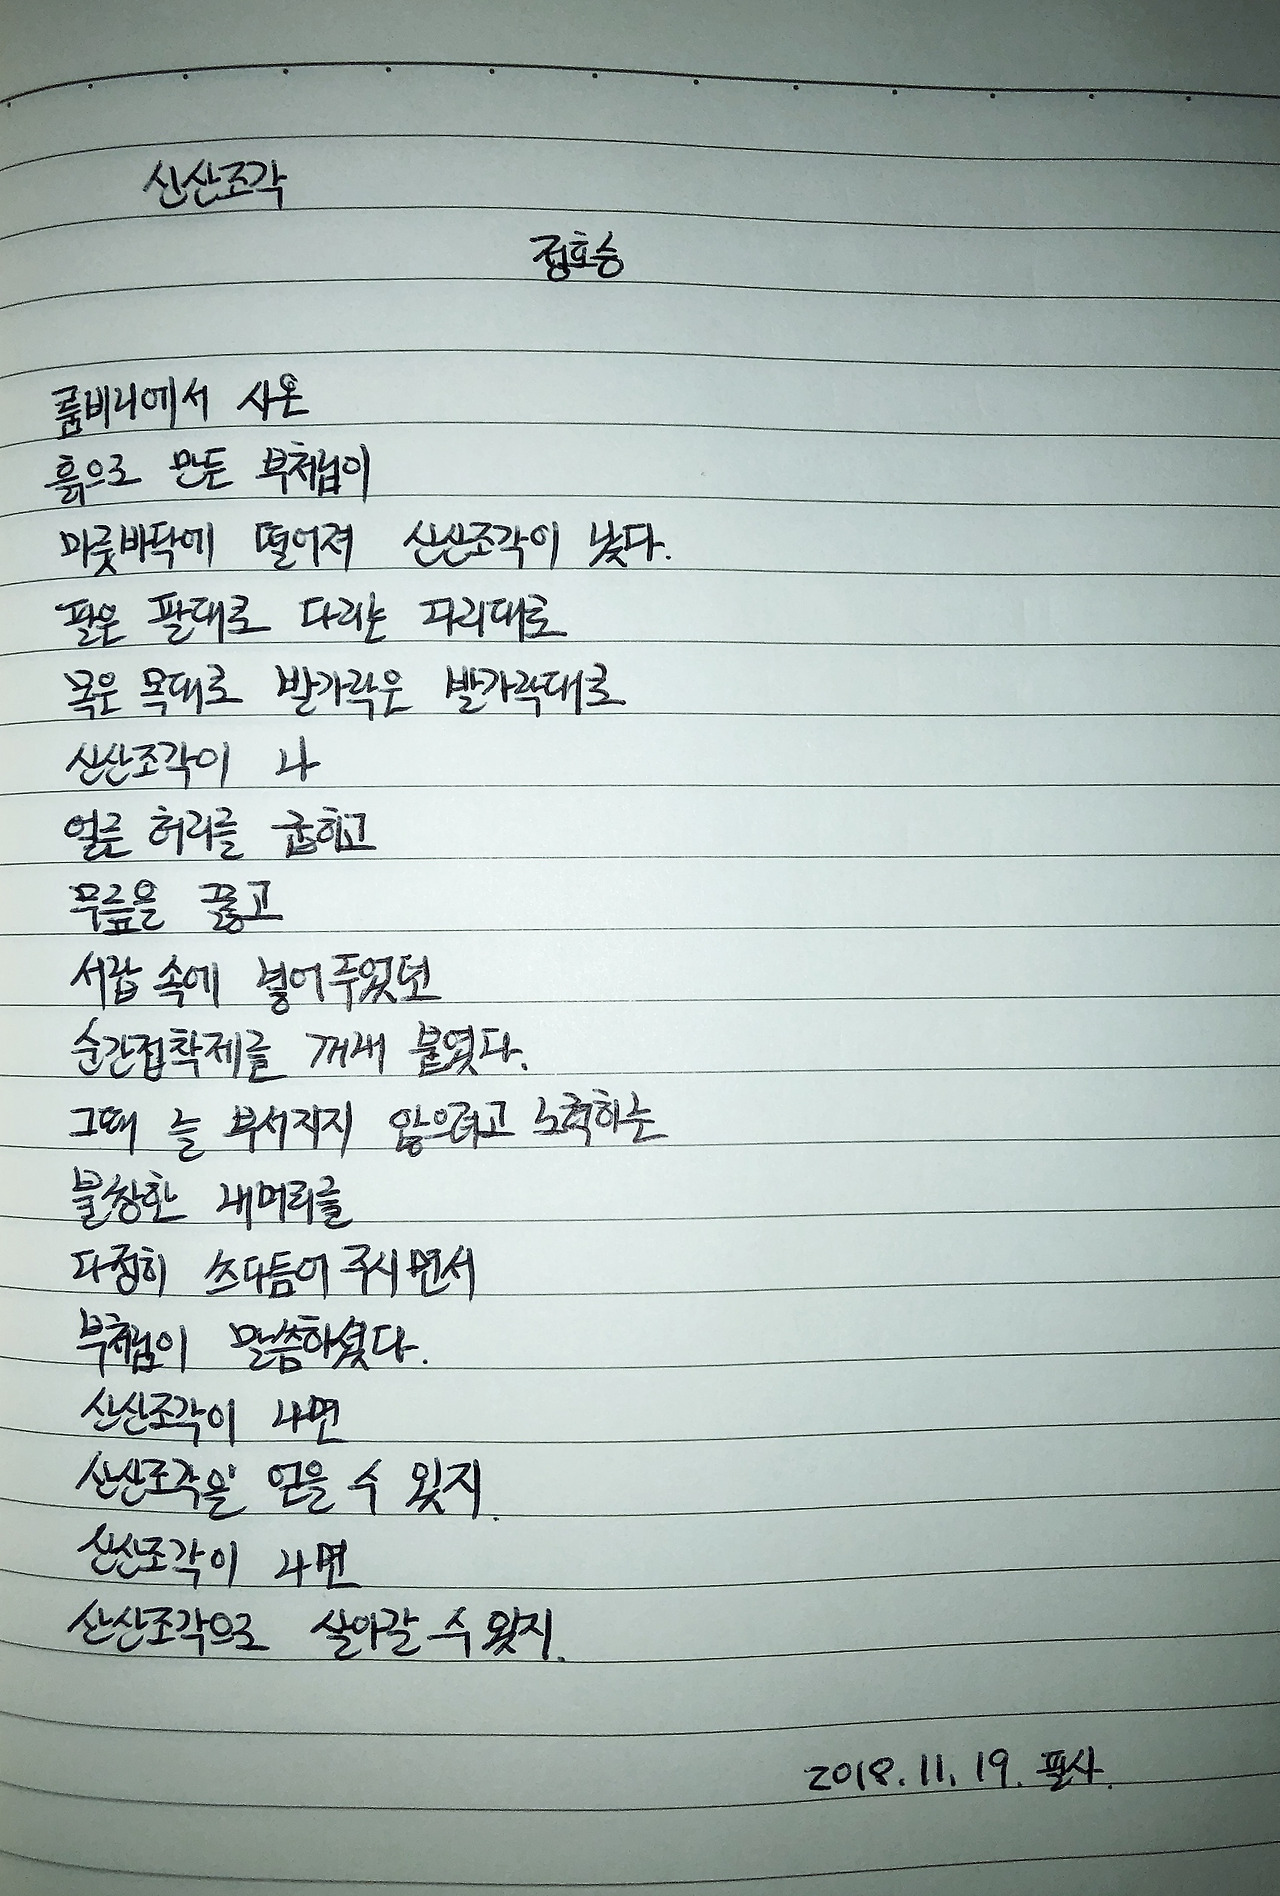 산산조각
정호승
룸비니에서 사온
흙으로 만든 부처님이
마룻바닥에 떨어져 산산조각이 났다.
팔은 팔대로 다리는 다리대로
목은 목대로 발가락은 발가락대로
산산조각이 나
얼른 허리를 굽히고
무릎을 꿇고
서랍 속에 넣어 두었던
순간접착제를 꺼내 붙였다.
그때 늘 부서지지 않으려고 노력하는
불쌍한 내머리를
다정히 쓰다듬어 주시면서
부처님이 말씀하셨다.
산산조각이 나면
산산조각을 얻을 수 있지.
산산조각이 나면
산산조각으로 살아갈 수 있지.
2018. 11. 19. 필사.